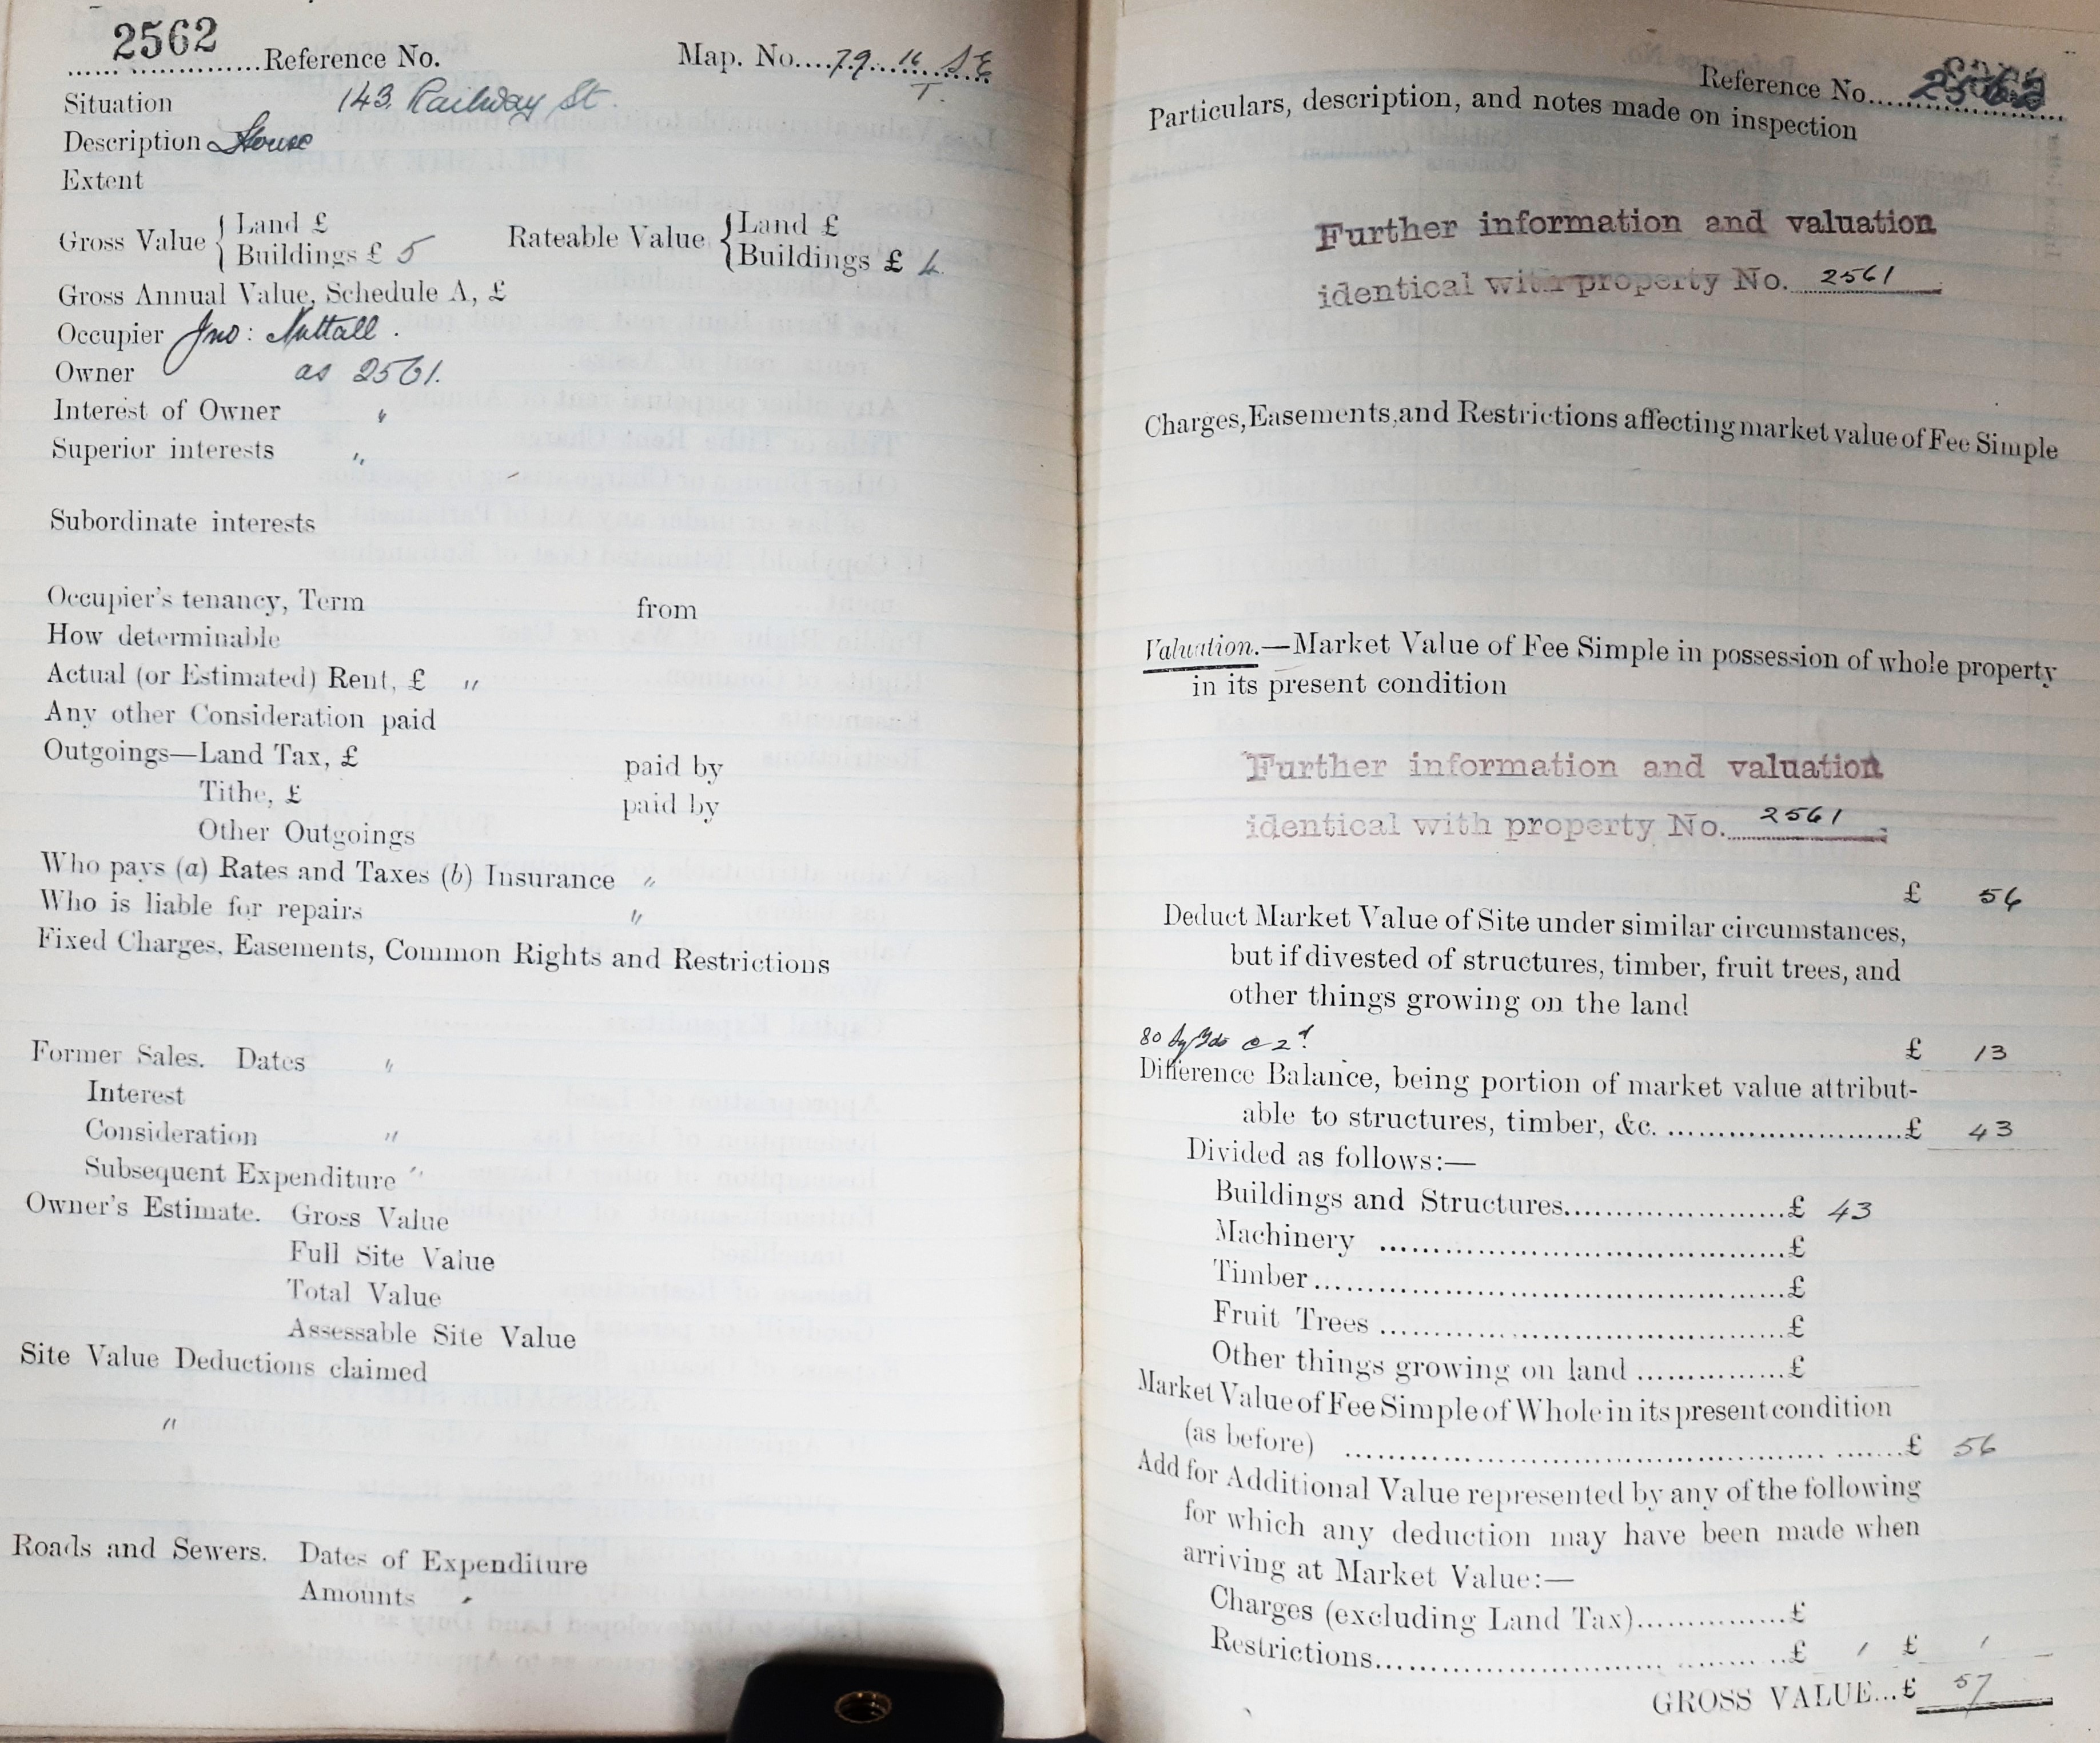 2562
Reference No. Map. No. 79 16 SE
T.
Situation 143 Railway St.
Description House
Extent
Gross Value { Land £ Rateable Value { Land £
Buildings £ 5 Buildings £ 4
Gross Annual Value, Schedule A, £
Occupier Jno: Nuttall.
Owner as 2561.
Interest of Owner "
Superior interests "
Subordinate interests
Occupier's tenancy, Term from
How determinable
Actual (or Estimated) Rent, £ "
Any other Consideration paid
Outgoings—Land Tax, £ paid by
Tithe, £ paid by
Other Outgoings
Who pays (a) Rates and Taxes (b) Insurance "
Who is liable for repairs "
Fixed Charges, Easements, Common Rights and Restrictions
Former Sales. Dates "
Interest
Consideration "
Subsequent Expenditure "
Owner's Estimate. Gross Value
Full Site Value
Total Value
Assessable Site Value
Site Value Deductions claimed
"
Roads and Sewers. Dates of Expenditure
Amounts
Reference No. 2562
Particulars, description, and notes made on inspection
Further information and valuation
identical with property No. 2561
Charges, Easements, and Restrictions affecting market value of Fee Simple
Valuation.—Market Value of Fee Simple in possession of whole property
in its present condition
Further information and valuation
identical with property No. 2561
£ 56
Deduct Market Value of Site under similar circumstances,
but if divested of structures, timber, fruit trees, and
other things growing on the land
80 Sq Yds @ 2d £ 13
Difference Balance, being portion of market value attribut-
able to structures, timber, &c. £ 43
Divided as follows:—
Buildings and Structures £ 43
Machinery £
Timber £
Fruit Trees £
Other things growing on land £
Market Value of Fee Simple of Whole in its present condition
(as before) £ 56
Add for Additional Value represented by any of the following
for which any deduction may have been made when
arriving at Market Value:—
Charges (excluding Land Tax) £
Restrictions £ 1 £ 1
GROSS VALUE...£ 57